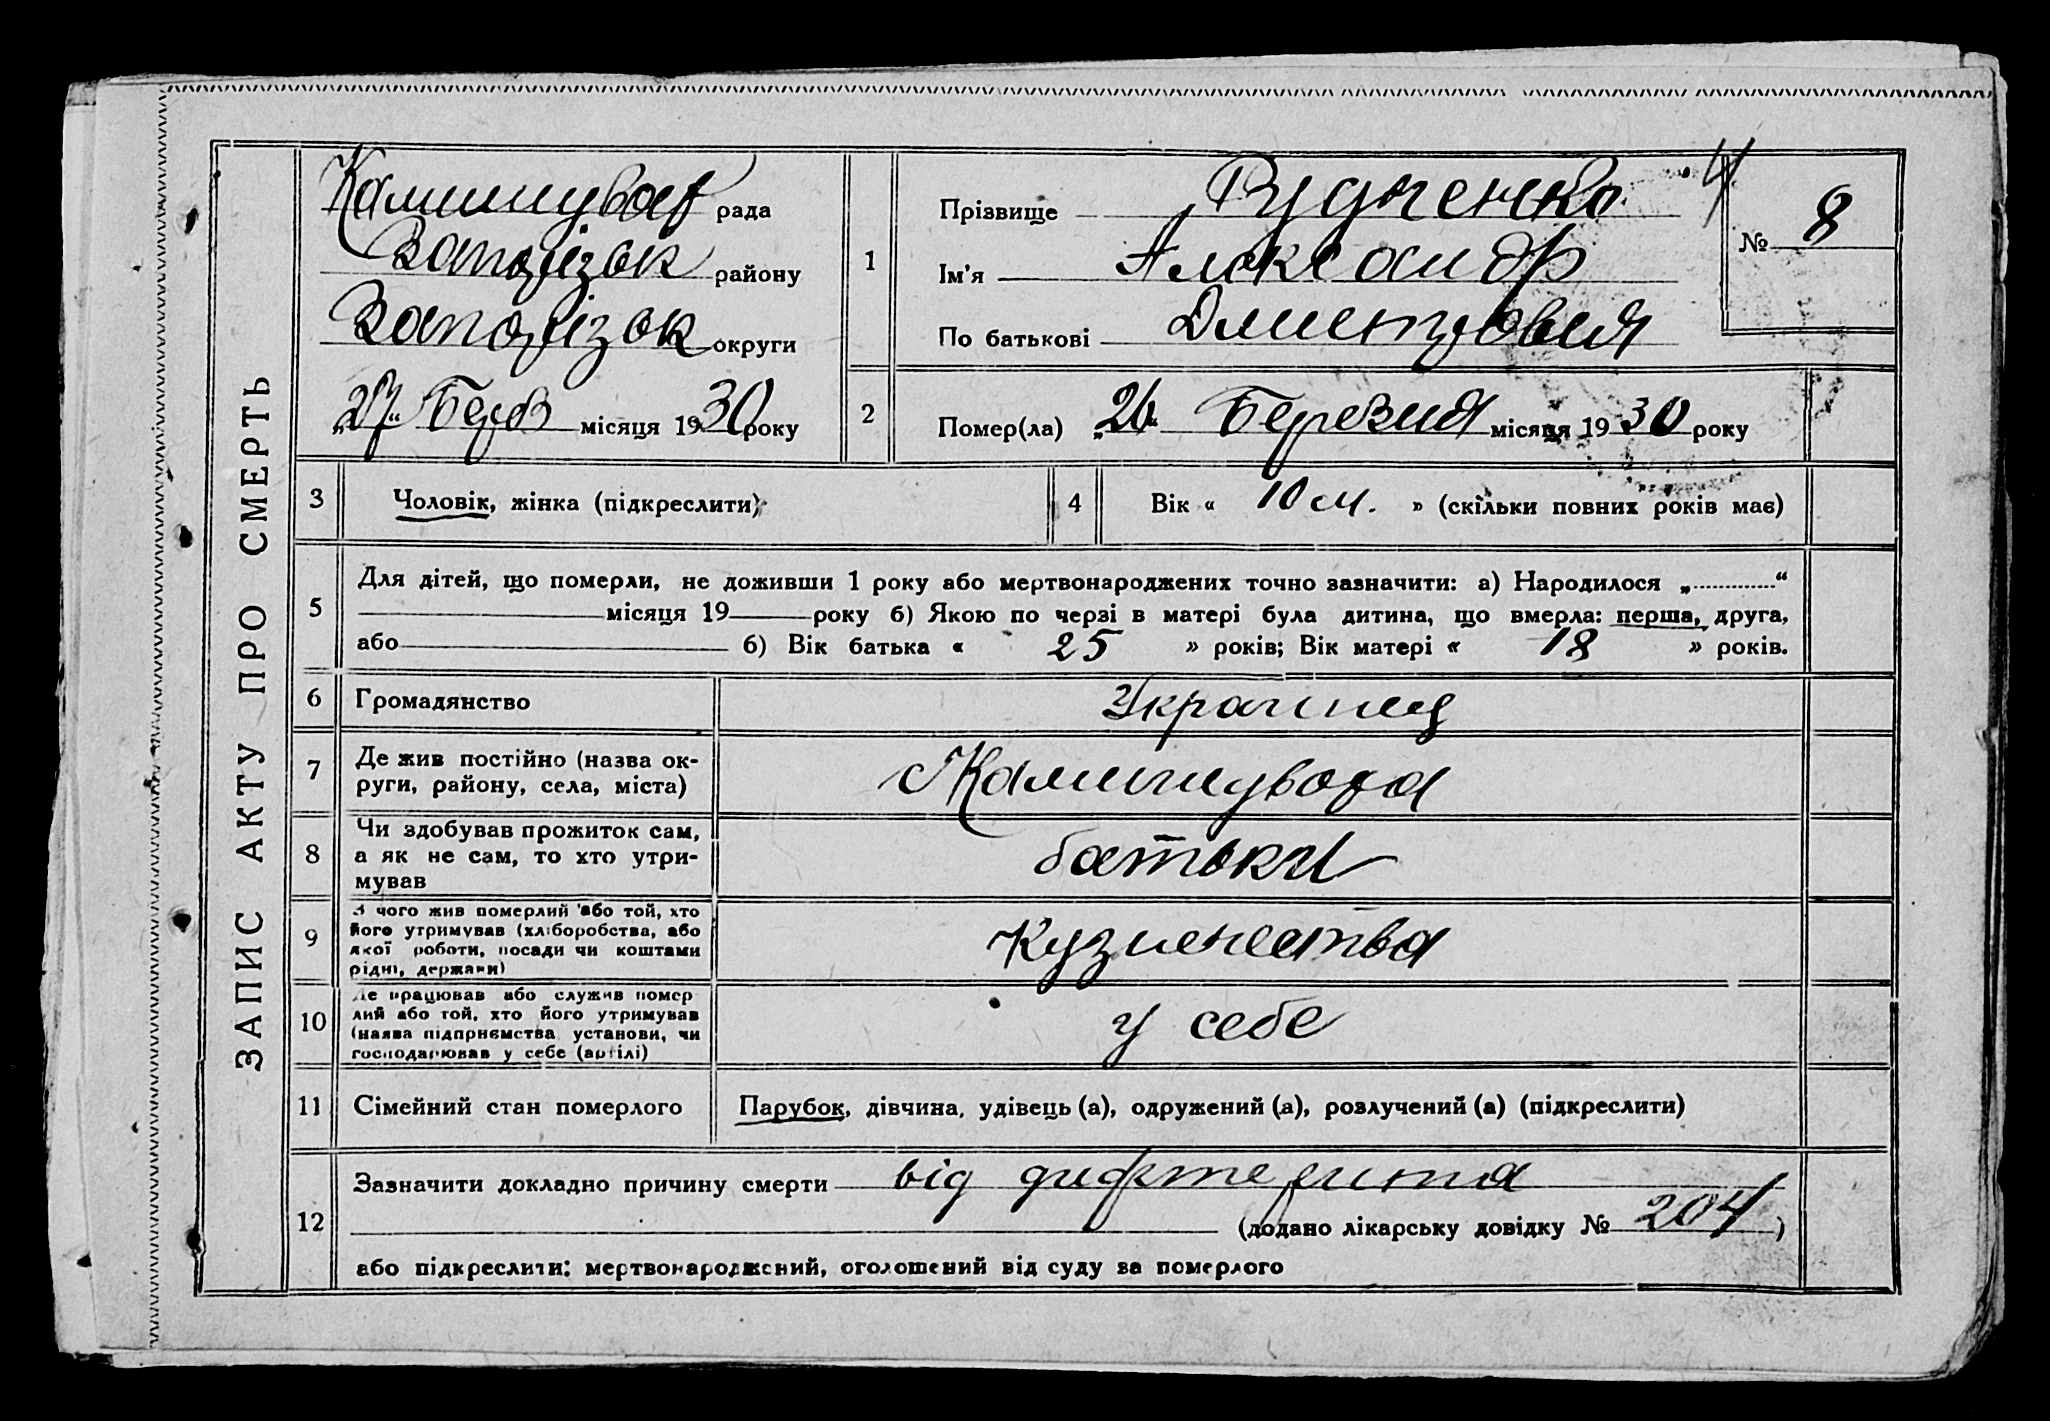 ЗАПИС АКТУ ПРО СМЕРТЬ
Камишуват рада
Запоріжж району
Запоріжж округи
„27“ Берез місяця 1930 року
1
Прізвище Рудченко
Ім'я Александр
По батькові Дмитрович
4
№ 8
2
Помер(ла) „26“ Березня місяця 1930 року
3
Чоловік, жінка (підкреслити)
4
Вік « 10 м. » (скільки повних років має)
5
Для дітей, що померли, не доживши 1 року або мертвонароджених точно зазначити: а) Народилося „ “
місяця 19 року б) Якою по черзі в матері була дитина, що вмерла: перша, друга,
або б) Вік батька « 25 » років; Вік матері « 18 » років.
6
Громадянство
Украинец
7
Де жив постійно (назва ок-
руги, району, села, міста)
с Камишувата
8
Чи здобував прожиток сам,
а як не сам, то хто утри-
мував
батьки
9
З чого жив померлий або той, хто
його утримував (хліборобства, або
якої роботи, посади чи коштами
рідні, держави)
Кузнечества
10
Де працював або служив помер
лий або той, хто його утримував
(назва підприємства установи, чи
господарював у себе (артілі)
у себе
11
Сімейний стан померлого
Парубок, дівчина, удівець (а), одружений (а), розлучений (а) (підкреслити)
12
Зазначити докладно причину смерти від дифтерита
(додано лікарську довідку № 204)
або підкреслити: мертвонароджений, оголошений від суду за померлого